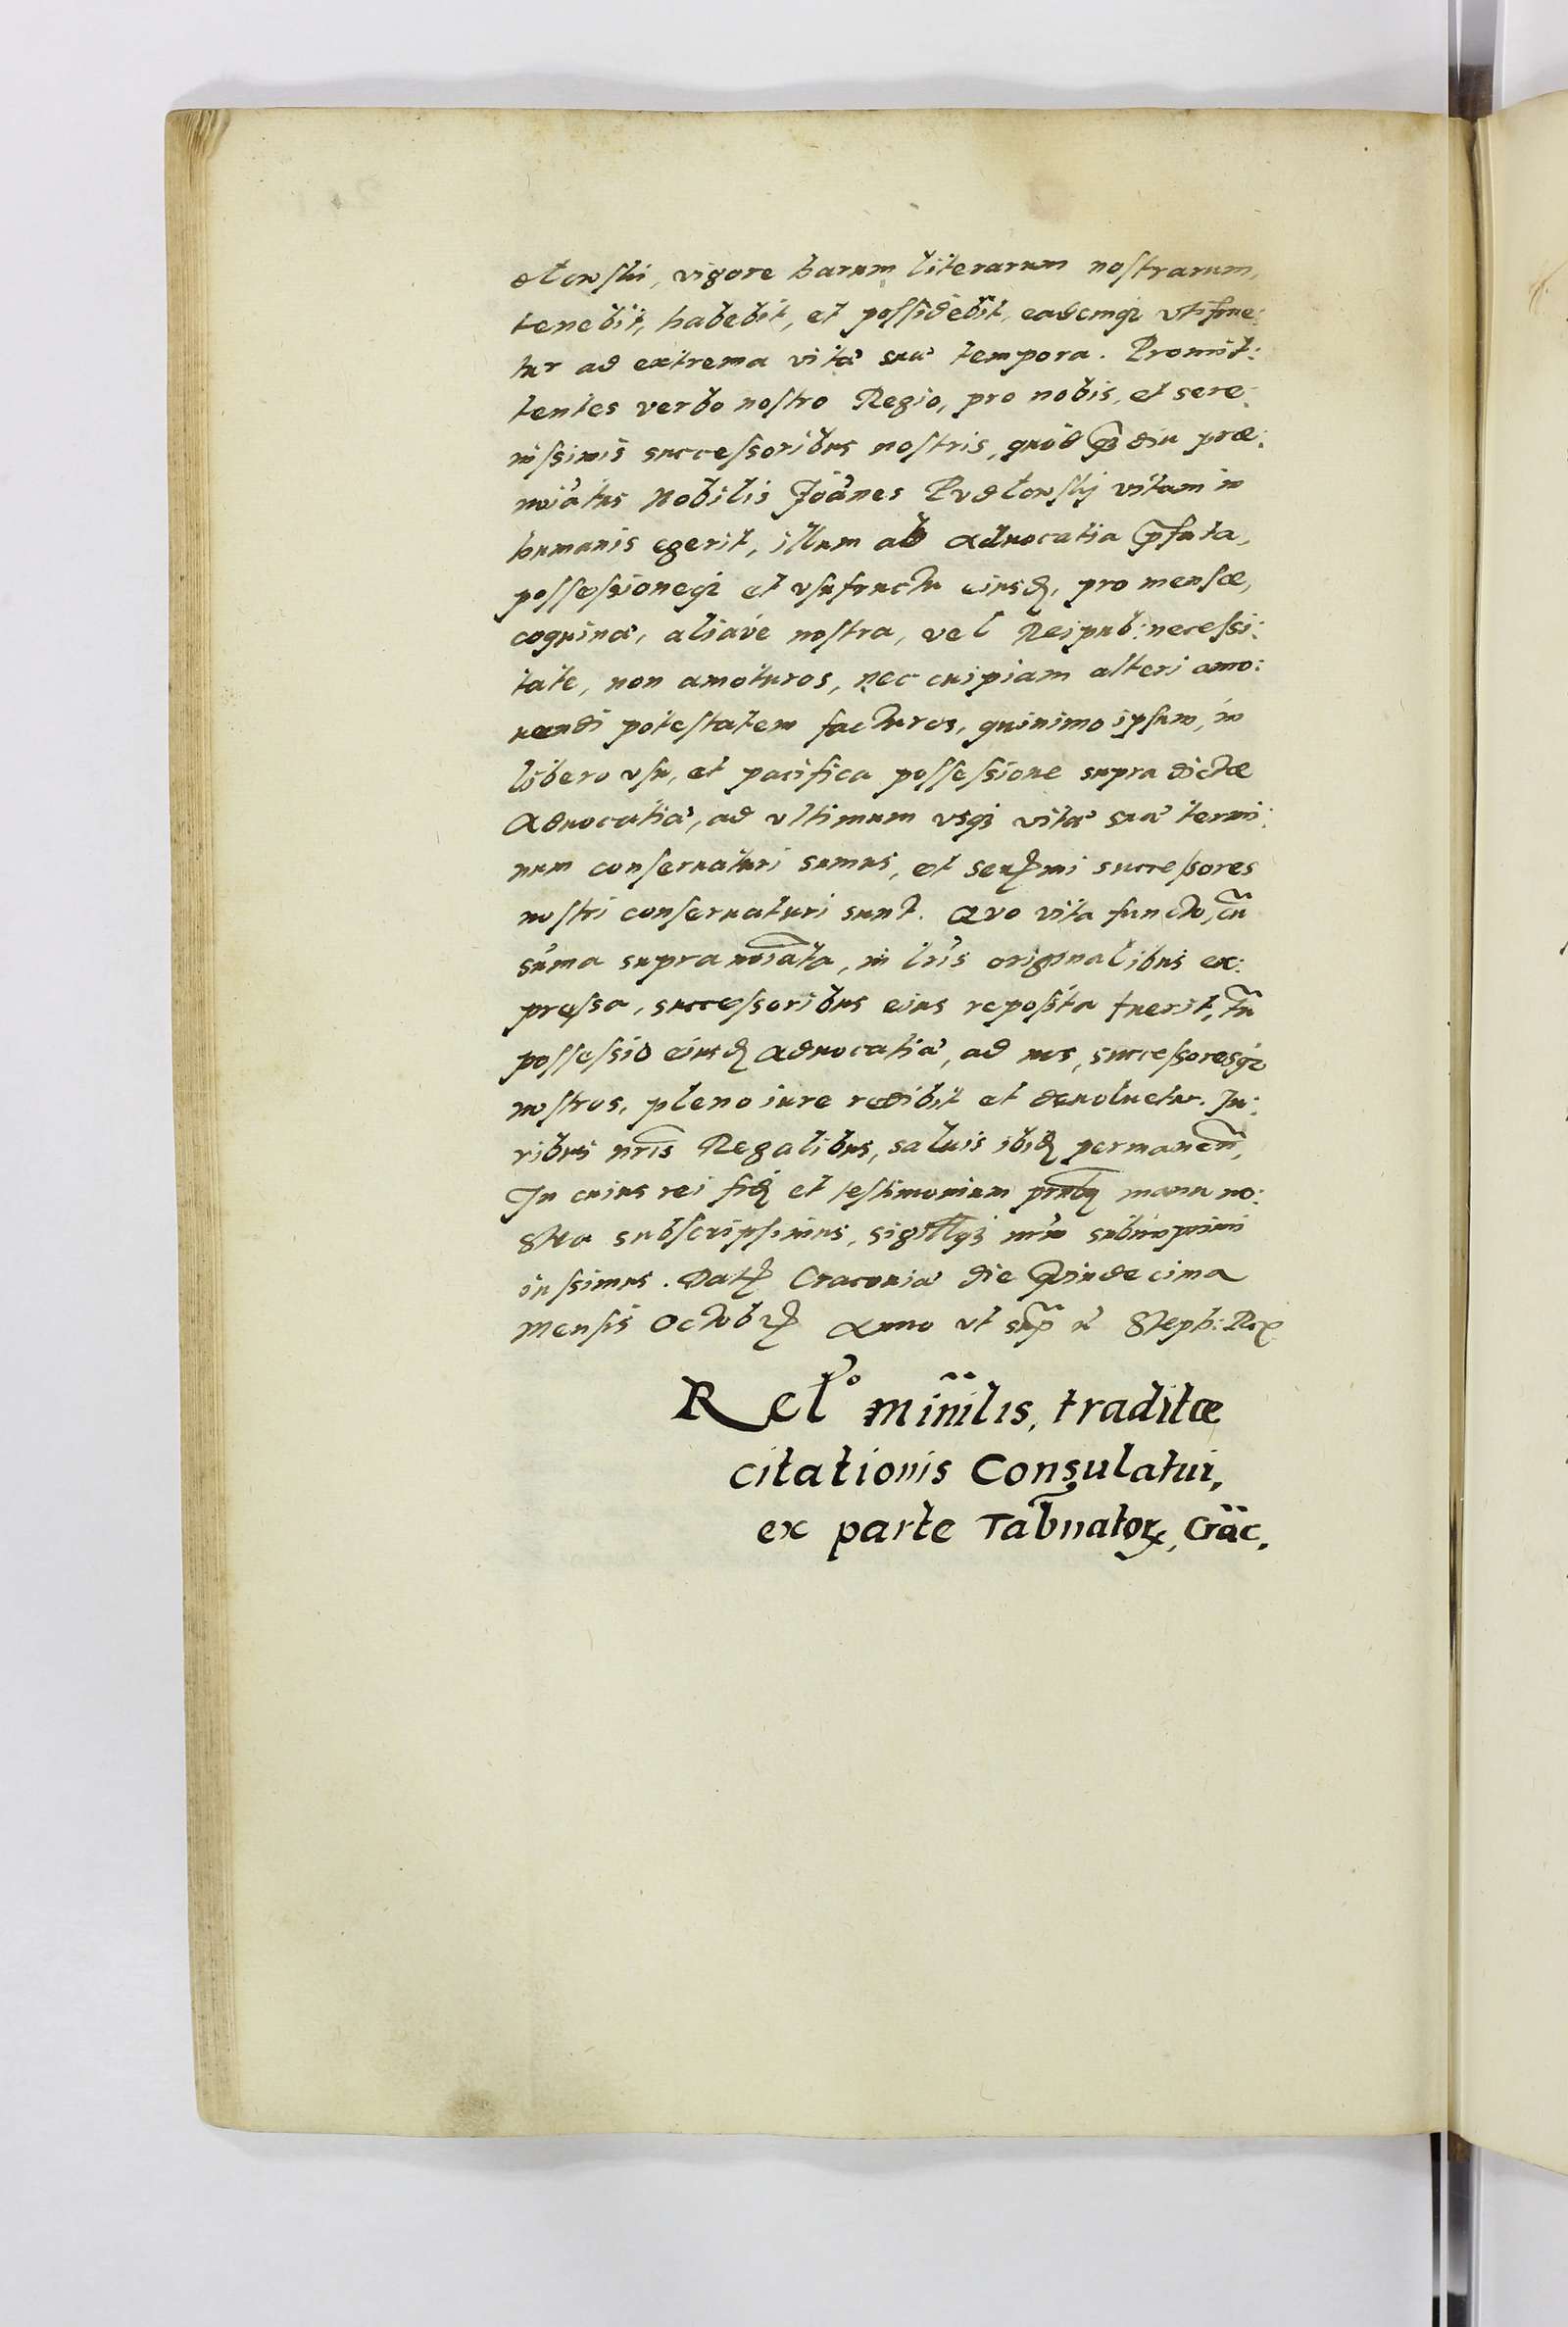 dłowski, vigore harum literarum nostrarum,
tenebit, habebit, et possidebit, eademq₃ utifrue:
tur ad extrema vitæ suæ tempora. Promit:
tentes verbo nostro Regio, pro nobis, et sere:
nissimis successoribus nostris, quod q̃diu præ:
no͂iatus Nobilis Joa͂nes Pudłowsky vitam in
humanis egerit, illum ab Aduocatia p̃fata,
possessioneq₃ et vsufructu eiusd, pro mensæ,
coquinæ, aliaue nostra, vel Reipub: necessi:
tate, non amoturos, nec cuipiam alteri amo:
uendi potestatem facturos, quinimo ipsum, in
libero vsu, et pacifica possessione supra dictæ
Aduocatiæ, ad vltimum vsq₃ vitæ suæ termi:
num conseruaturi sumus, et sermi successores
nostri conseruaturi sunt. Quo vita functo, cu͂
su͂ma supra no͂iata, in lr͂is originalibus ex:
pressa, successoribus eius reposita fuerit, tu͂
possessio eiusd Aduocatiæ, ad nos, successoresq₃
nostros, pleno iure redibit et deuoluetur. Ju:
ribus nr͂is Regalibus, saluis ibid permanen͂,
In cuius rei fid et testimonium pn͂tes manu no:
stra subscripsimus, sigillq₃ nr͂m subimprimi
iussimus. Dat Cracouiæ die Quindecima
Mensis Octobr Anno vt sup͂ r͂ Steph: Rex
Relo mi͂nilis, traditæ
citationis Consulatui,
ex parte Tab͂natoꝝ, Crac.